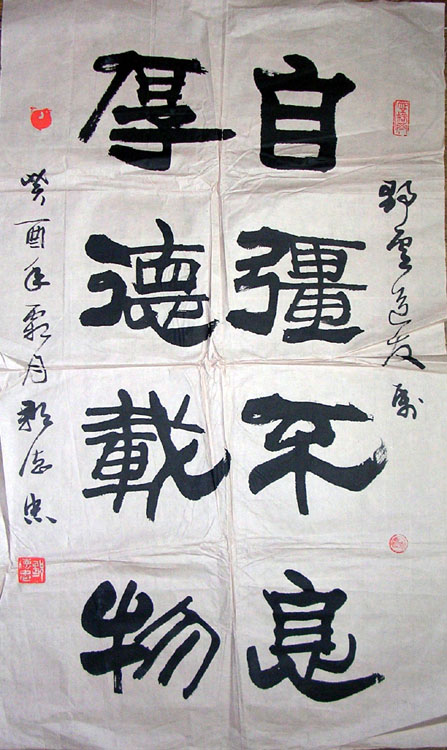 野雲道友属
自彊不息
厚德載物
癸酉年霜月志忠